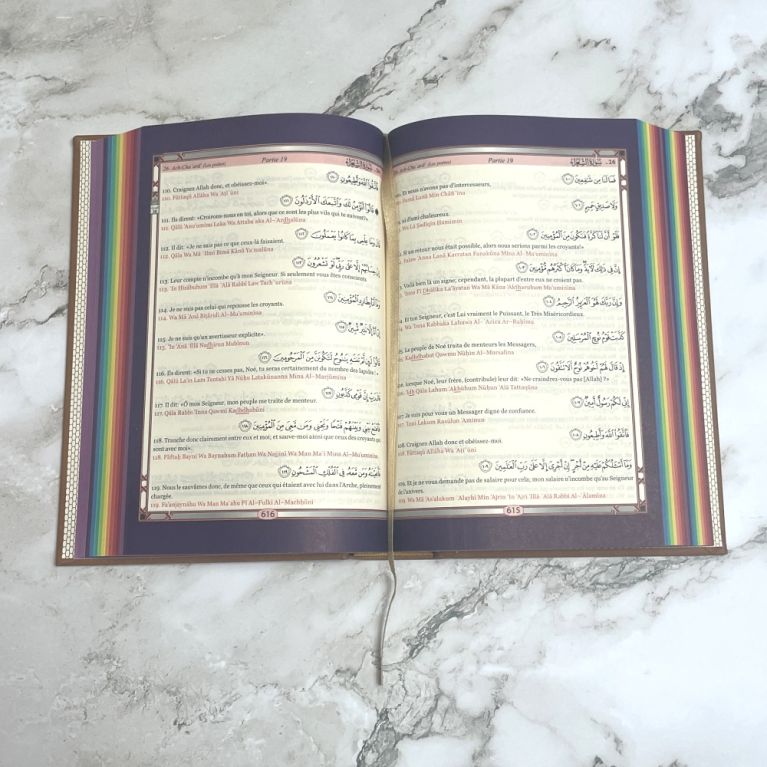 26. Ach-Chu'arâ' (Les poètes) Partie 19 سُورَةُ الشُّعَرَاء .26
فَمَا لَنَا مِن شَٰفِعِينَ ١٠٠
100. Et nous n'avons pas d'intercesseurs,
Famā Lanā Min Chāfi`īna
وَلَا صَدِيقٍ حَمِيمٍ ١٠١
ni d'ami chaleureux.
Wa Lā Şadīqin Ĥamīmin
فَلَوْ أَنَّ لَنَا كَرَّةً فَنَكُونَ مِنَ ٱلْمُؤْمِنِينَ ١٠٢
Si un retour nous était possible, alors nous serions parmi les croyants!»
Falaw 'Anna Lanā Karratan Fanakūna Mina Al-Mu'uminīna
إِنَّ فِى ذَٰلِكَ لَـَٔايَةً وَمَا كَانَ أَكْثَرُهُم مُّؤْمِنِينَ ١٠٣
Voilà bien là un signe; cependant, la plupart d'entre eux ne croient pas.
'Inna Fī Dhālika La'āyatan Wa Mā Kāna 'Aktharuhum Mu'uminīna
وَإِنَّ رَبَّكَ لَهُوَ ٱلْعَزِيزُ ٱلرَّحِيمُ ١٠٤
Et ton Seigneur, c'est Lui vraiment le Puissant, le Très Miséricordieux.
Wa 'Inna Rabbaka Lahuwa Al-`Azīzu Ar-Raĥīmu
كَذَّبَتْ قَوْمُ نُوحٍ ٱلْمُرْسَلِينَ ١٠٥
Le peuple de Noé traita de menteurs les Messagers,
Kadhdhabat Qawmu Nūĥin Al-Mursalīna
إِذْ قَالَ لَهُمْ أَخُوهُمْ نُوحٌ أَلَا تَتَّقُونَ ١٠٦
lorsque Noé, leur frère, (contribule) leur dit: «Ne craindrez-vous pas [Allah] ?»
'Idh Qāla Lahum 'Akhūhum Nūĥun 'Alā Tattaqūna
إِنِّى لَكُمْ رَسُولٌ أَمِينٌ ١٠٧
107. Je suis pour vous un Messager digne de confiance.
107. 'Innī Lakum Rasūlun 'Amīnun
فَٱتَّقُوا۟ ٱللَّهَ وَأَطِيعُونِ ١٠٨
108. Craignez Allah donc et obéissez-moi.
108. Fāttaqū Allāha Wa 'Aţī`ūni
وَمَآ أَسْـَٔلُكُمْ عَلَيْهِ مِنْ أَجْرٍ إِنْ أَجْرِىَ إِلَّا عَلَىٰ رَبِّ ٱلْعَٰلَمِينَ ١٠٩
109. Et je ne vous demande pas de salaire pour cela; mon salaire n'incombe qu'au Seigneur
de l'univers.
109. Wa Mā 'As'alukum `Alayhi Min 'Ajrin 'In 'Ajrī 'Illā `Alá Rabbi Al-`Ālamīna
615
26. Ach-Chu'arâ' (Les poètes) Partie 19 سُورَةُ الشُّعَرَاء
فَٱتَّقُوا۟ ٱللَّهَ وَأَطِيعُونِ ١١٠
110. Craignez Allah donc, et obéissez-moi».
110. Fāttaqū Allāha Wa 'Aţī`ūni
قَالُوٓا۟ أَنُؤْمِنُ لَكَ وَٱتَّبَعَكَ ٱلْأَرْذَلُونَ ١١١
111. Ils dirent: «Croirons-nous en toi, alors que ce sont les plus vils qui te suivent?».
111. Qālū 'Anu'uminu Laka Wa Attaba`aka Al-'Ardhalūna
قَالَ وَمَا عِلْمِى بِمَا كَانُوا۟ يَعْمَلُونَ ١١٢
112. Il dit: «Je ne sais pas ce que ceux-là faisaient.
112. Qāla Wa Mā `Ilmī Bimā Kānū Ya`malūna
إِنْ حِسَابُهُمْ إِلَّا عَلَىٰ رَبِّى لَوْ تَشْعُرُونَ ١١٣
113. Leur compte n'incombe qu'à mon Seigneur. Si seulement vous êtes conscients.
113. 'In Ĥisābuhum 'Illā `Alá Rabbī Law Tash`urūna
وَمَآ أَنَا۠ بِطَارِدِ ٱلْمُؤْمِنِينَ ١١٤
114. Je ne suis pas celui qui repousse les croyants.
114. Wa Mā 'Anā Biţāridi Al-Mu'uminīna
إِنْ أَنَا۠ إِلَّا نَذِيرٌ مُّبِينٌ ١١٥
115. Je ne suis qu'un avertisseur explicite».
115. 'In 'Anā 'Illā Nadhīrun Mubīnun
قَالُوا۟ لَئِن لَّمْ تَنتَهِ يَٰنُوحُ لَتَكُونَنَّ مِنَ ٱلْمَرْجُومِينَ ١١٦
116. Ils dirent: «Si tu ne cesses pas, Noé, tu seras certainement du nombre des lapidés!»
116. Qālū La'in Lam Tantahi Yā Nūĥu Latakūnanna Mina Al-Marjūmīna
قَالَ رَبِّ إِنَّ قَوْمِى كَذَّبُونِ ١١٧
117. Il dit: «Ô mon Seigneur, mon peuple me traite de menteur.
117. Qāla Rabbi 'Inna Qawmī Kadhdhabūni
فَٱفْتَحْ بَيْنِى وَبَيْنَهُمْ فَتْحًا وَنَجِّنِى وَمَن مَّعِىَ مِنَ ٱلْمُؤْمِنِينَ ١١٨
118. Tranche donc clairement entre eux et moi; et sauve-moi ainsi que ceux des croyants qui
sont avec moi».
118. Fāftaĥ Baynī Wa Baynahum Fatĥan Wa Najjinī Wa Man Ma`ī Mina Al-Mu'uminīna
فَأَنجَيْنَٰهُ وَمَن مَّعَهُۥ فِى ٱلْفُلْكِ ٱلْمَشْحُونِ ١١٩
119. Nous le sauvâmes donc, de même que ceux qui étaient avec lui dans l'Arche, pleinement
chargée.
119. Fa'anjaynāhu Wa Man Ma`ahu Fī Al-Fulki Al-Mashĥūni
616